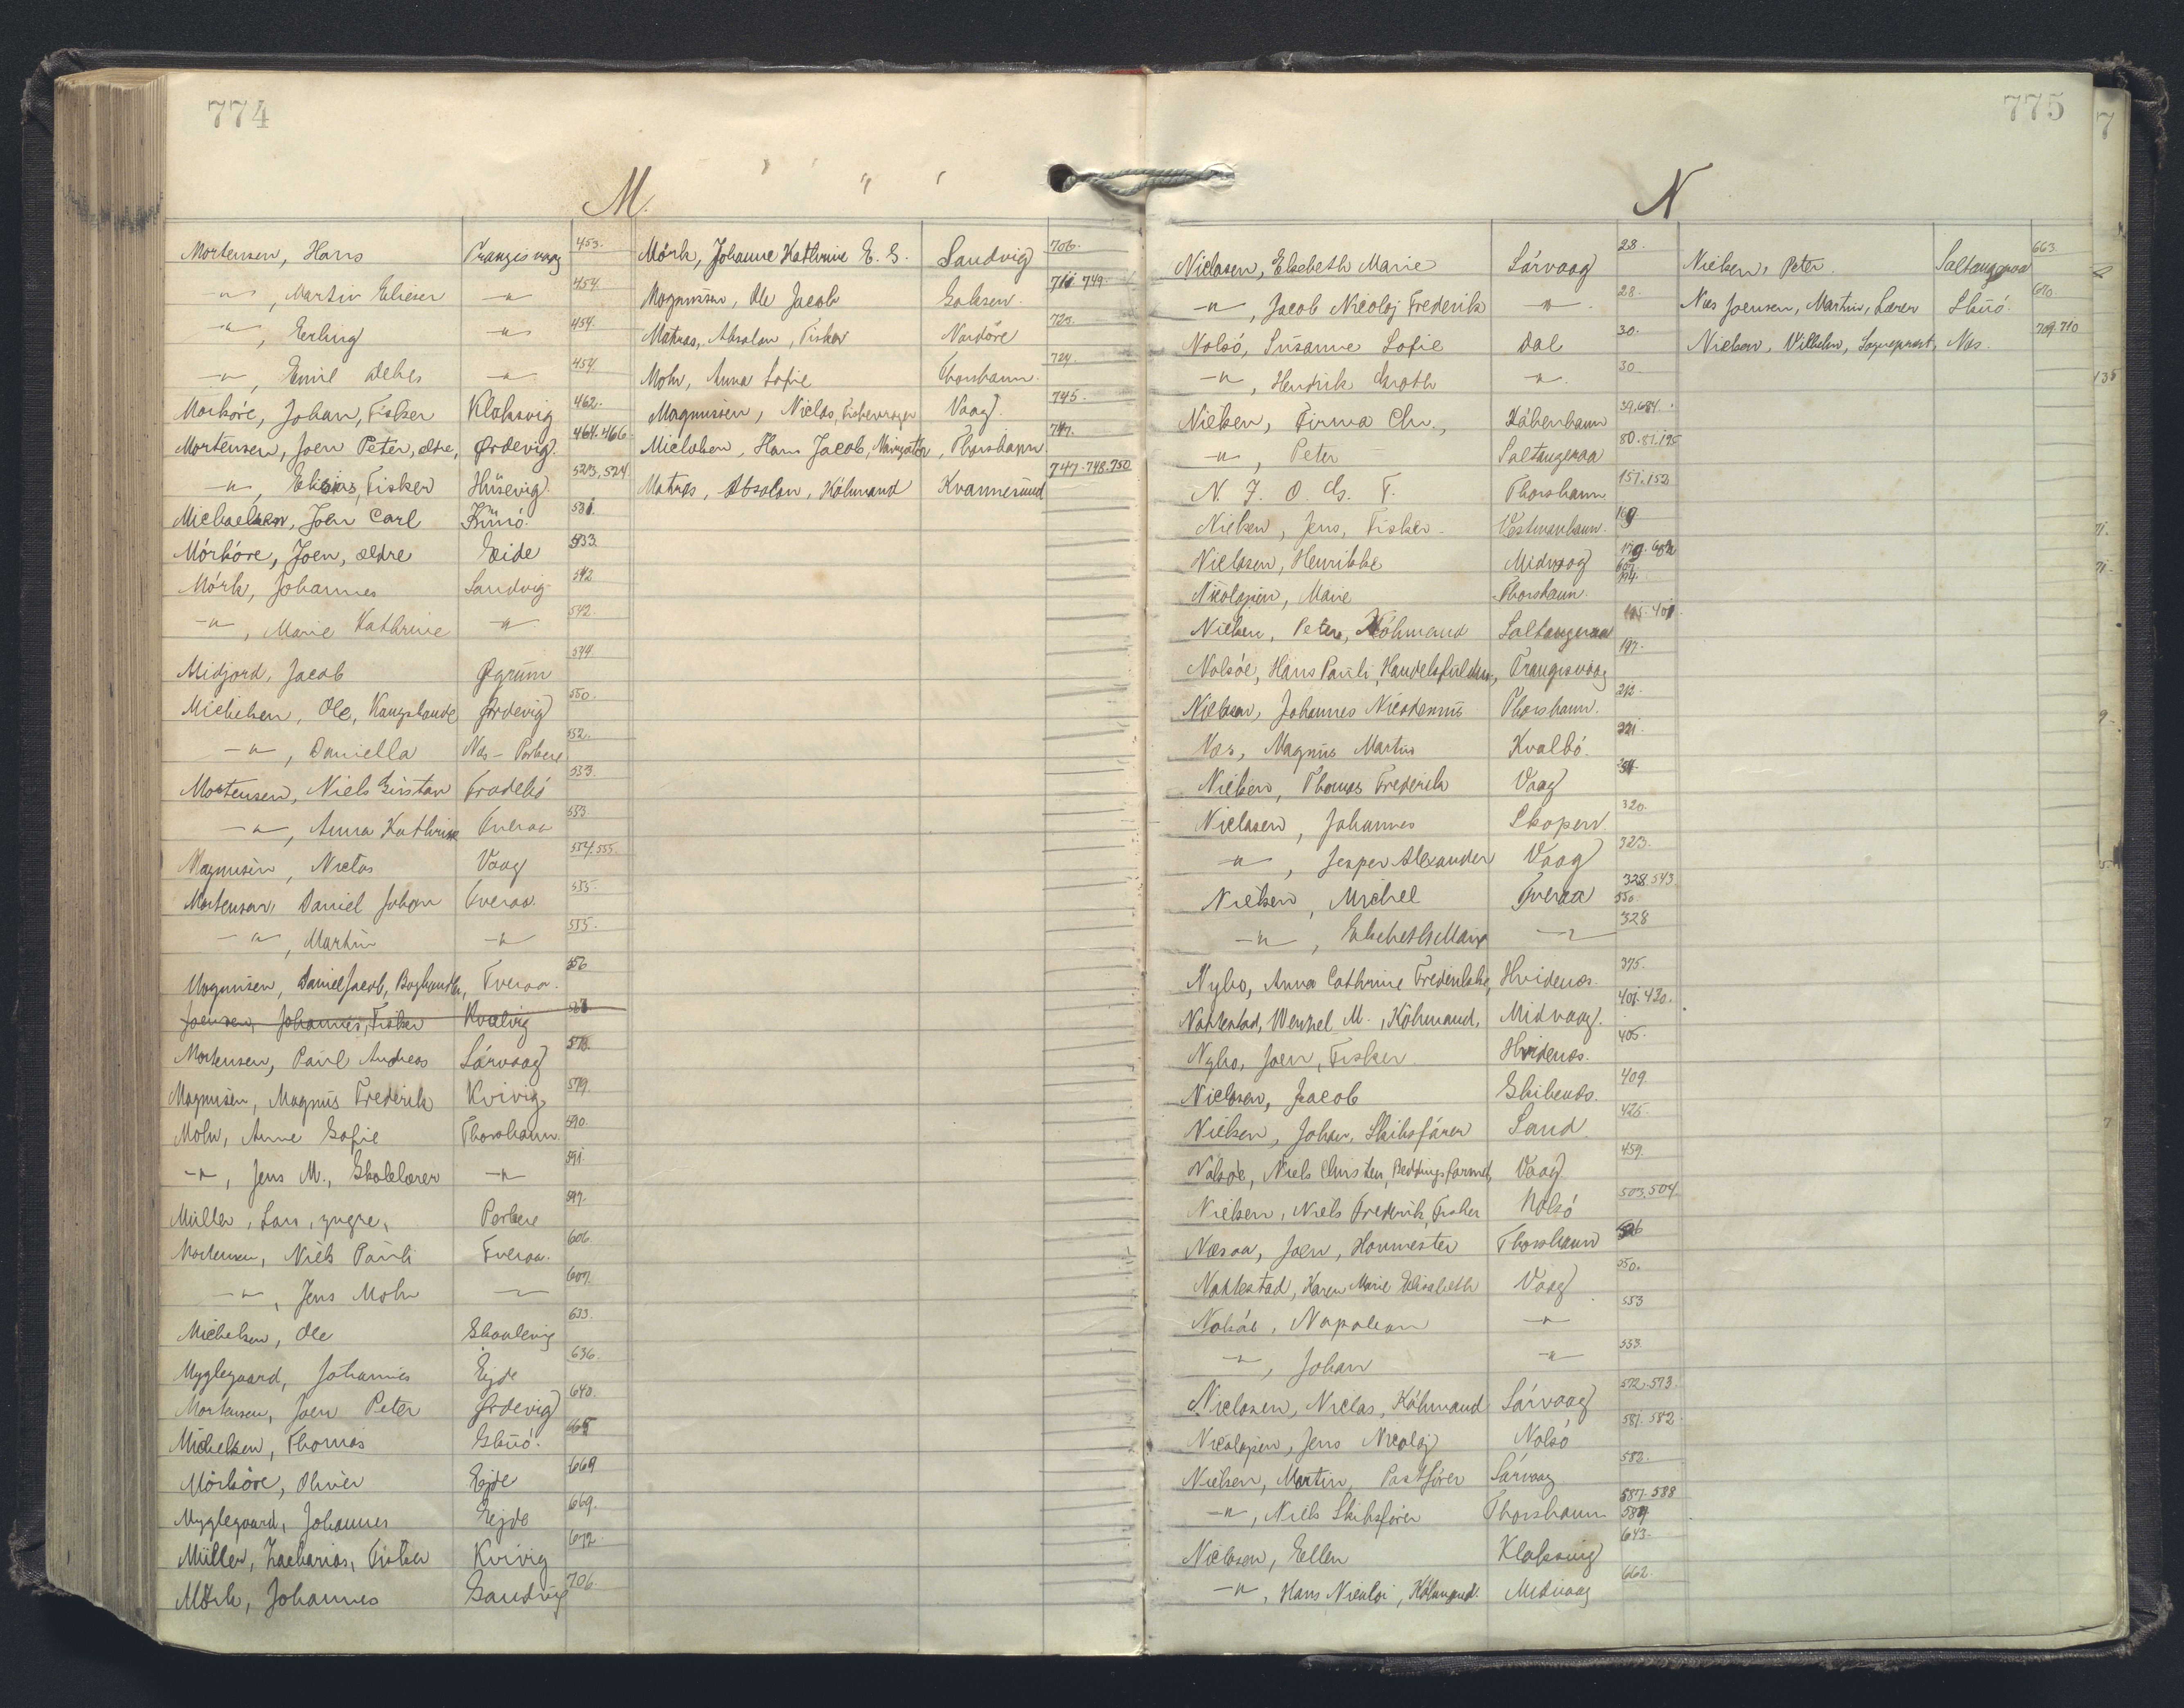 774
M.
Mortensen, Hans Trangisvaag 453.
-"-, Martin Elieser -"- 454
-"-, Erling -"- 454.
-"-, Emil Debes -"- 454
Morköre, Johan, Fisker Klaksvig 462.
Mortensen, Joen Peter, ældre, Ørdevig. 464.466.
-"-, Elisius, Fisker Hüsevig. 523,524
Michaelsen, Joen Carl Künö. 531.
Mörköre, Joen, ældre Eide 533.
Mörk, Johannes Sandvig 542
-"-, Marie Kathrine -"- 542.
Midjord, Jacob Øgrüm 544
Michelsen, Ole, Kongsbonde Ørdevig 550.
-"-, Daniella Næs - Porkere 552.
Mortensen, Niels Gustav Frodebö 553.
-"-, Anna Kathrine Tveraa 553.
Magnusen, Niclas Vaag 554.555.
Mortensen, Daniel Johan Tveraa. 555.
-"-, Martin -"- 555.
Magnusen, Daniel Jacob, Boghandler, Tveraa. 556
Joensen, Johannes, Fisker Kvalvig
Mortensen, Paul Andreas Sörvaag 578.
Magnusen, Magnüs Frederik Kvivig 579.
Mohr, Anne Sofie Thorshavn. 590.
-"-, Jens M., Skolelærer -"- 591
Müller, Lars, yngre, Porkere 597.
Mortensen, Niels Pauli Tveraa. 606.
-"-, Jens Mohr -"- 607.
Michelsen, Ole Skaalevig 633.
Myglegaard, Johannes Ejde 636.
Mortensen, Joen Peter Ördevig 640.
Michelsen, Thomas Skuö. 665
Mörköre, Oliver Ejde 669
Myglegaard, Johannes Ejde 669.
Müller, Zacharias, Fisker Kvivig 672.
Mörk, Johannes Sandvig 706.
Mörk, Johanne Kathrine E. S. Sandvig 706.
Magnussen, Ole Jacob 711 749.
Matras, Absalon, Fisker Nordöre 723.
Mohr, Anna Sofie Thorshavn. 724.
Magnussen, Niclas, Vaag. 745.
Mikkelsen, Hans Jacob, Navigatör, Thorshavn 747.
Matras, Absalon, Köbmand Kvannesund 747.748.750
775
N
Niclasen, Elsebeth Marie Sörvaag 28.
-"-, Jacob Nicolaj Frederik -"- 28.
Nolsö, Susanne Sofie Dal 30.
-"-, Hendrik Groth -"- 30
Nielsen, Firma Chr., Köbenhavn 39.684.
-"-, Peter Saltangeraa 80.81.195
N. J. O. G. T. Thorshavn 151.152
Nielsen, Jens, Fisker. Vestmanhavn. 169
Niclasen, Henrikke Midvaag
Nicolajsen, Marie Thorshavn 194.
Nielsen, Peter, Köbmand Saltangeraa 195.401.
Nolsöe, Hans Pauli, Handelsfuldm., Trangisvaag 197.
Nielsen, Johannes Nicodemus Thorshavn. 212.
Næs, Magnus Martin Kvalbö. 221.
Nielsen, Thomas Frederik Vaag
Niclasen, Johannes Skopen 320.
-"-, Jesper Alexander Vaag 323.
Nielsen, Michel Tveraa 328.543 550.
-"-, Elsebeth Marie -"- 328
Nybo, Anna Cathrine Frederikke, Hvidenæs. 375.
Nattestad, Wenzel M., Köbmand, Midvaag. 401.420.
Nybo, Joen, Fisker Hvidenæs. 405.
Niclasen, Jacob Skibenæs. 409.
Nielsen, Johan, Skibsförer Sand. 425.
Nolsöe, Niels Christen, Beddingsformd, Vaag. 459.
Nielsen, Niels Frederik, Fisker Nolsö 503,504
Næsaa, Joen, Havnmester Thorshavn 526
Nattestad, Karen Marie Elisabeth Vaag 550.
Nolsöe, Napoleon -"- 553
-"-, Johan -"- 553.
Niclasen, Niclas, Köbmand Sörvaag 572.573.
Nicolajsen, Jens Nicolaj Nolsö 581.582.
Nielsen, Martin, Postförer Sörvaag 583.
-"-, Niels Skibsförer Thorshavn 587.588 589
Niclasen, Ellen Klaksvig 643.
-"-, Hans Nicolai, Köbmand. Midvaag 662.
Nielsen, Peter. Saltangeraa 663.
Næs Joensen, Martin, Lærer Skuö. 670
Nielsen, Vilhelm, Sognepræst, Næs. 709.710